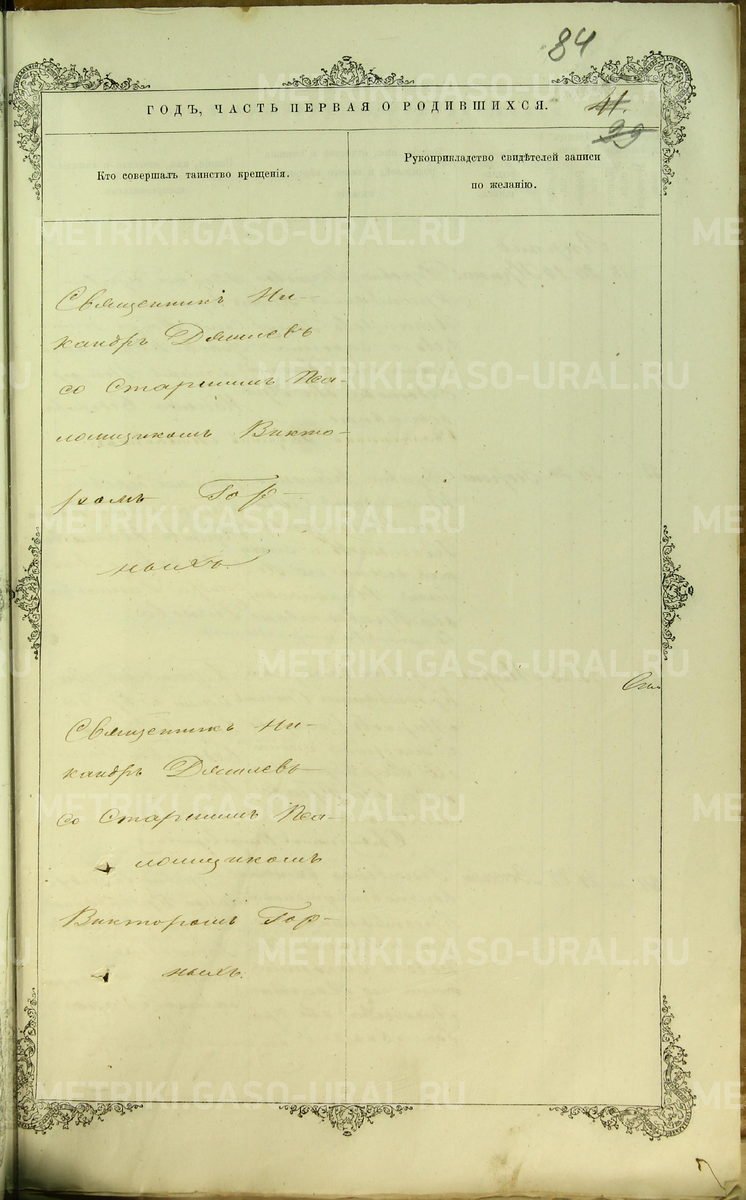 84
ГОДЪ, ЧАСТЬ ПЕРВАЯ О РОДИВШИХСЯ.
11.
99
Кто совершалъ таинство крещенія.
Рукоприкладство свидѣтелей записи
по желанію.
Священникъ Ни-
кандръ
со Старшимъ Пса-
ломщикомъ Викто-
ромъ Гор-
ныхъ.
Священникъ Ни-
кандръ
со Старшимъ Пса-
ломщикомъ
Викторомъ Гор-
ныхъ.
METRIKI.GASO-URAL.RU